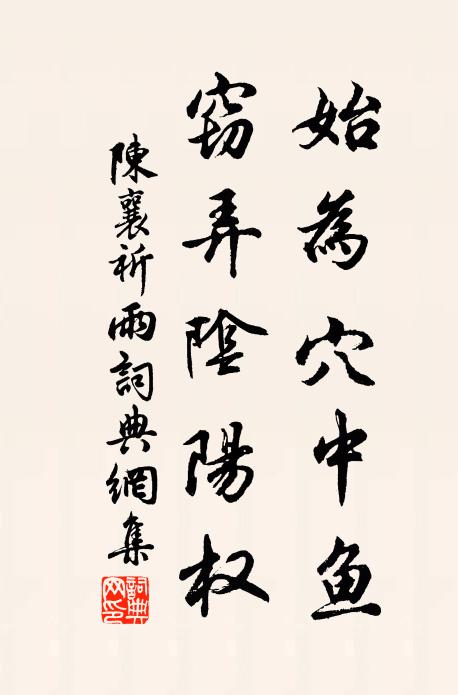 始為穴中鱼
窃弄陰陽权
陳襄祈雨詞典網集
詞典网印